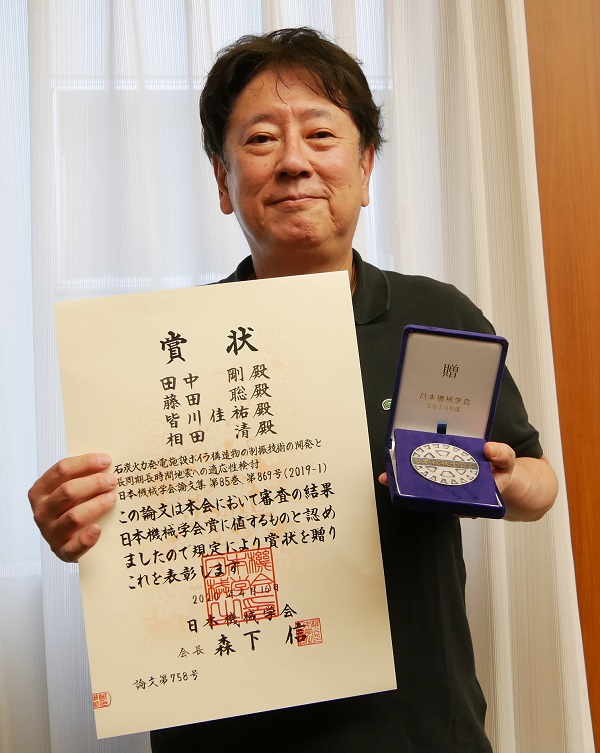 賞状
田中 剛殿
藤田 聡殿
皆川佳祐殿
相田 清殿
石炭火力発電施設ボイラ構造物の制振技術の開発と
長周期長時間地震への適応性検討
日本機械学会論文集 第85巻, 第869号(2019-1)
この論文は本会において審査の結果
日本機械学会賞に値するものと認め
ましたので規定により賞状を贈り
これを表彰します
日本機械学会
会長 森下 信
論文第758号
贈
日本機械学会
2019年度